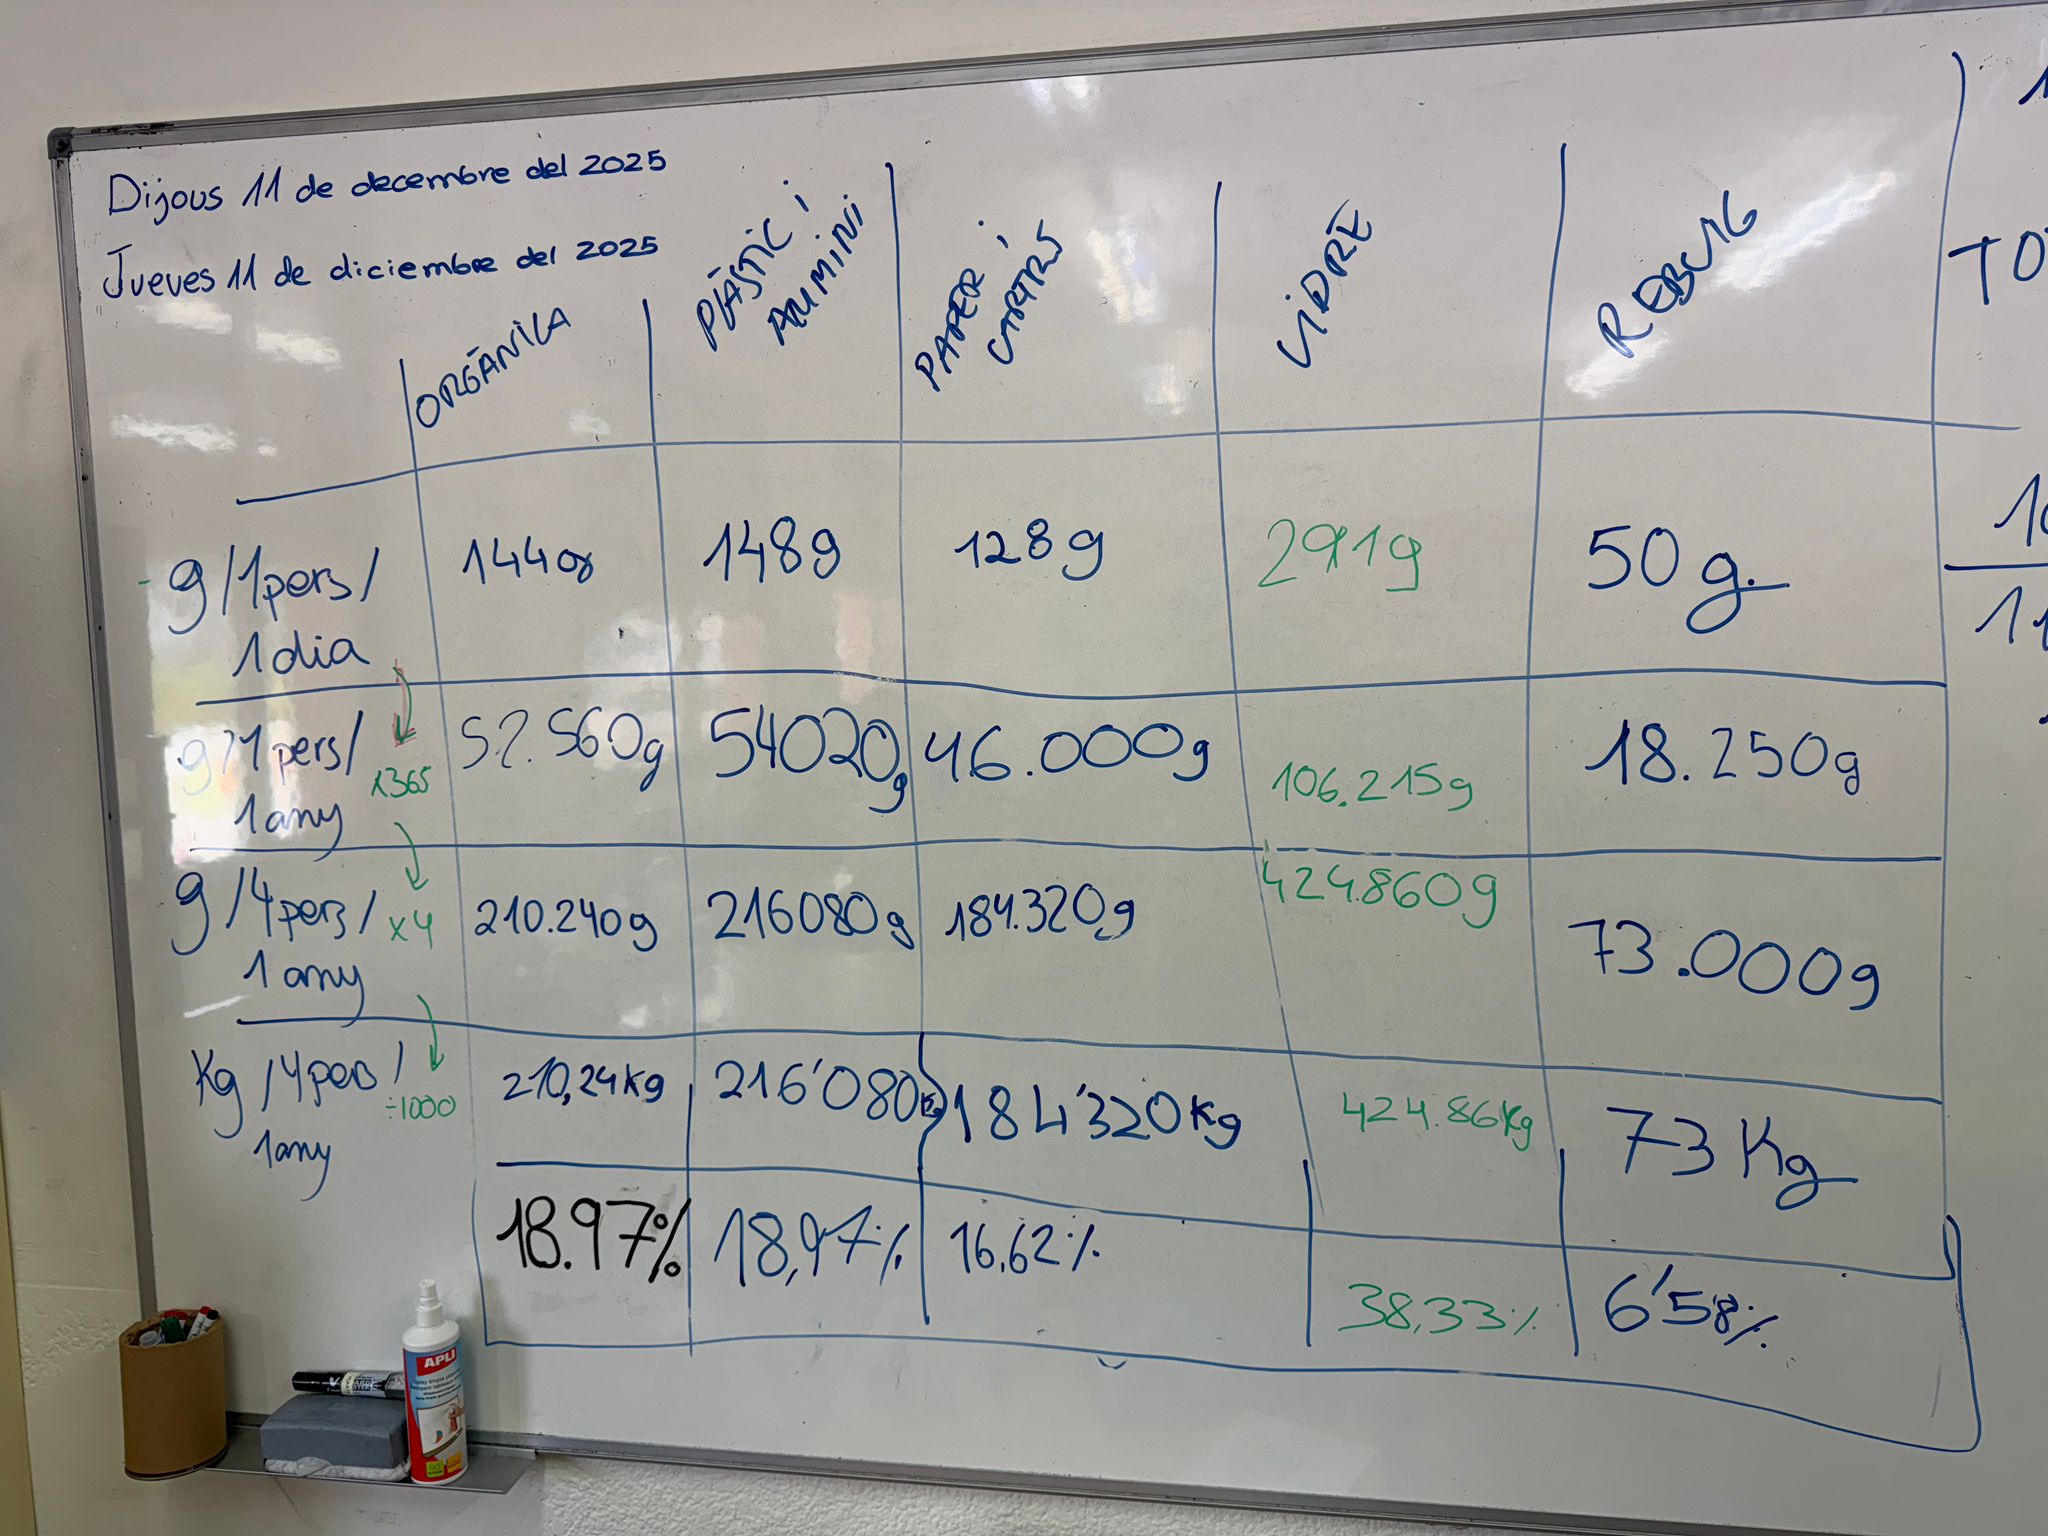 Dijous 11 de decembre del 2025
Jueves 11 de diciembre del 2025
ORGÀNICA
PLÀSTIC i
ALUMINI
PAPER i
CARTRÓ
VIDRE
REBUIG
g/1pers/
1dia
144g
148g
128g
291g
50g.
g/1pers/
1any
x365
52.560g
54020g
46.000g
106.215g
18.250g
g/4pers/
1any
x4
210.240g
216080g
184.320g
424.860g
73.000g
Kg/4pers/
1any
÷1000
210,24Kg
216'080Kg
184'320Kg
424.86Kg
73Kg
18.97%
18,97%
16,62%
38,33%
6'58%
APLI